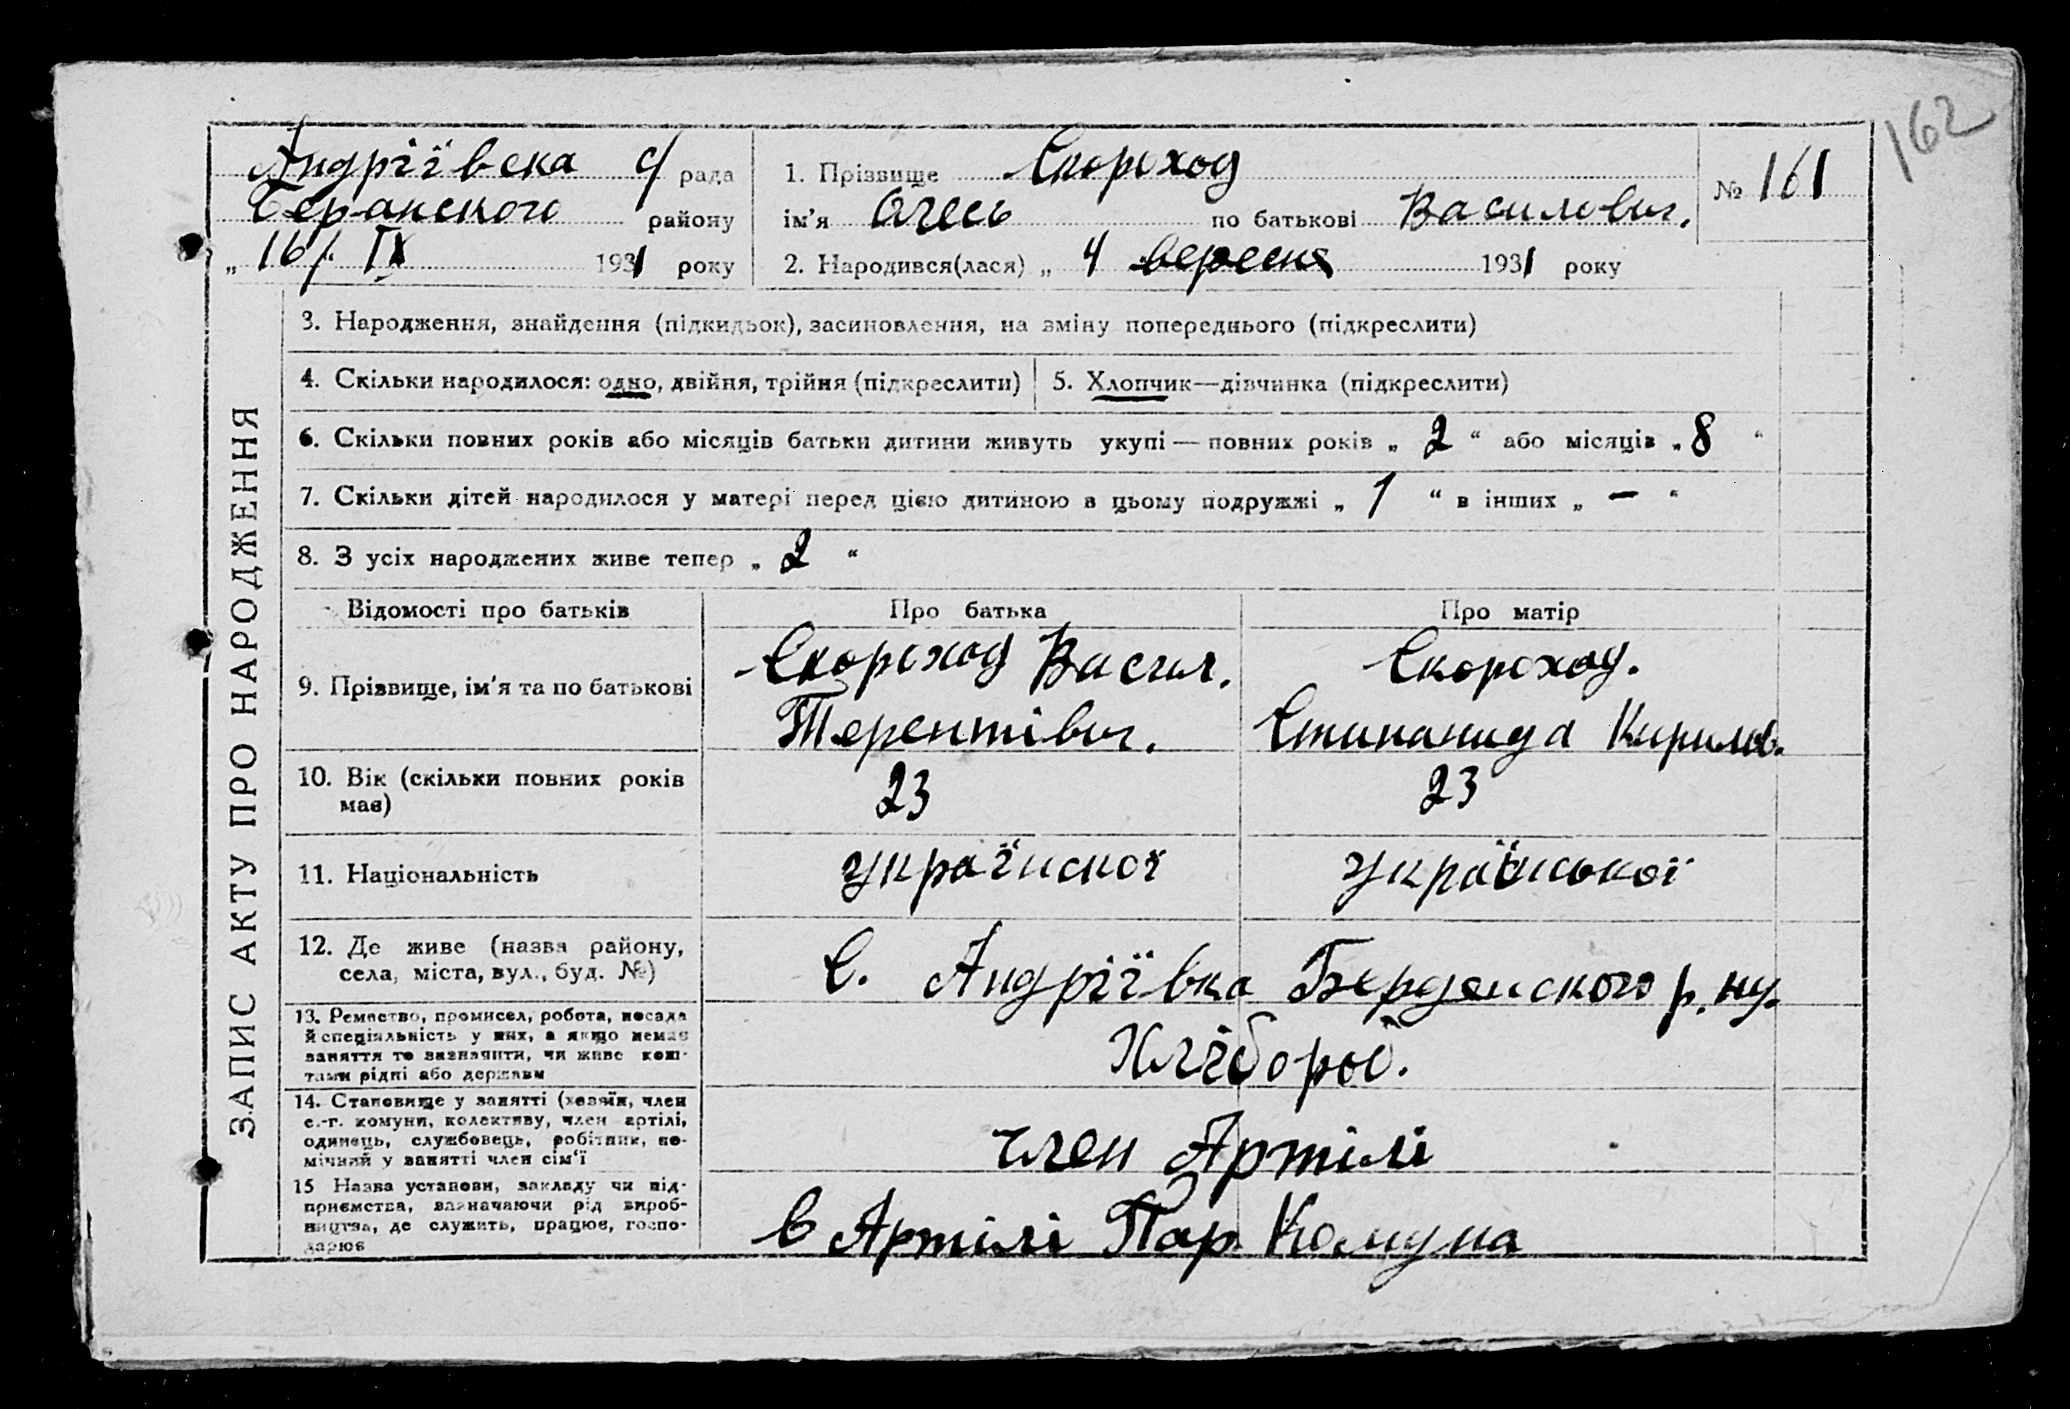 162
Андріївска с/ рада
Беранского району
„ 16/. IX 1931 року
1. Прізвище Скороход
ім'я Олесь по батькові Василович.
2. Народився(лася) „ 4 вересня 1931 року
№ 161
ЗАПИС АКТУ ПРО НАРОДЖЕННЯ
3. Народження, знайдення (підкидьок), засиновлення, на зміну попереднього (підкреслити)
4. Скільки народилося: одно, двійня, трійня (підкреслити)
5. Хлопчик—дівчинка (підкреслити)
6. Скільки повних років або місяців батьки дитини живуть укупі — повних років „ 2 “ або місяців „ 8 “
7. Скільки дітей народилося у матері перед цією дитиною в цьому подружжі „ 1 “ в інших „ — “
8. З усіх народжених живе тепер „ 2 “
Відомості про батьків Про батька Про матір
9. Прізвище, ім'я та по батькові
Скороход Васил.
Терентівич.
Скороход.
Степанида Кирилов.
10. Вік (скільки повних років
має)
23 23
11. Національність українскої української
12. Де живе (назва району,
села, міста, вул., буд. №)
С. Андріївка Берденского р. ну.
13. Ремество, промисел, робота, посада
й спеціяльність у них, а якщо немає
заняття то зазначити, чи живе кош-
тами рідні або держави
Хлібороб.
14. Становище у занятті (хазяїн, член
с.-г. комуни, колективу, член артілі,
одинець, службовець, робітник, по-
мічний у занятті член сім'ї
член Артілі
15 Назва установи, закладу чи під-
приємства, вазначаючи рід вироб-
ництва, де служить, працює, госпо-
дарює
в Артілі Пар. Комуна